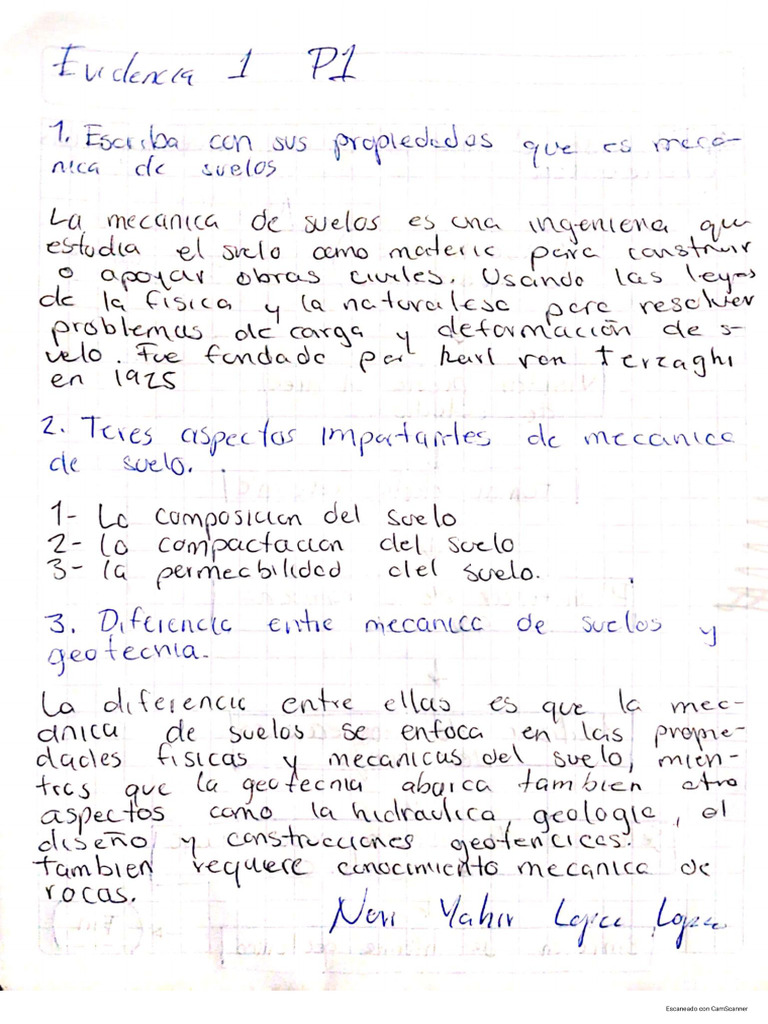 Evidencia 1 P1
1. Escriba con sus propiededos que es mecá-
nica de suelos
La mecanica de suelos es una ingenieria que
estudia el suelo como materia para construir
o apoyar obras civiles. Usando las leyes
de la fisica y la naturalesa para resolver
problemas de carga y deformación de s-
uelo. Fue fundada por karl von terzaghi
en 1925
2. Teres aspectos importantes de mecanica
de suelo.
1- La composicion del suelo
2- la compactacion del suelo
3- la permeabilidad del suelo.
3. Diferencia entre mecanica de suelos y
geotecnia.
La diferencia entre ellas es que la mec-
anica de suelos se enfoca en las propie-
dades fisicas y mecanicas del suelo, mien-
tras que la geotecnia abarca tambien otro
aspectos como la hidraulica, geologia, el
diseño y construcciones geotencicas.
tambien requiere conocimiento mecanica de
rocas.
Neri Yahir Lopez Lopez
Escaneado con CamScanner